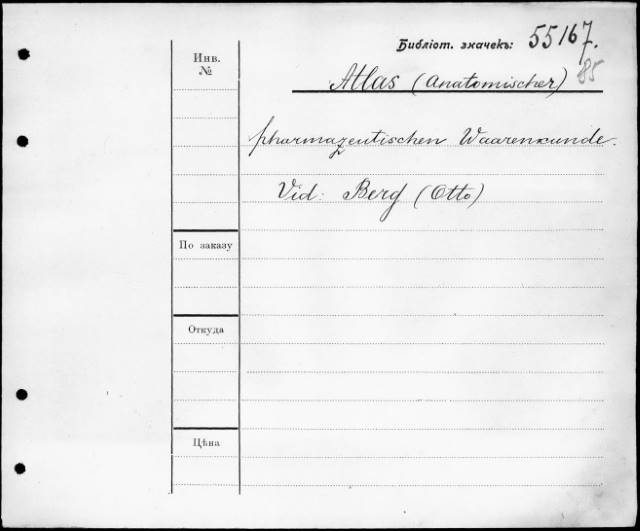 Библіот. значекъ: 55167.
85
Инв.
№
Atlas (anatomischer)
pharmazeutischen Waarenkunde.
Vid: Berg (Otto)
По заказу
Откуда
Цѣна